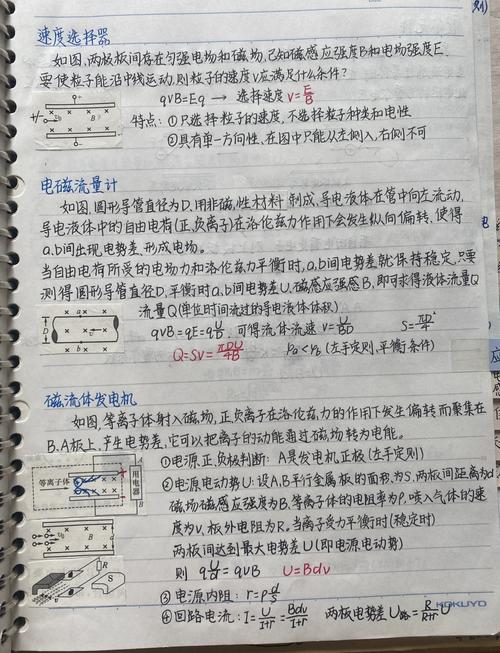 速度选择器
如图,两极板间存在匀强电场和磁场,已知磁感应强度B和电场强度E.
要使粒子能沿中线运动,则粒子的速度v应满足什么条件?
qvB=Eq → 选择速度 v=E/B
特点:①只选择粒子的速度,不选择粒子种类和电性
②具有单一方向性,在图中只能从左侧入,右侧不可
电磁流量计
如图,圆形导管直径为D,用非磁性材料制成,导电液体在管中向左流动,
导电液体中的自由电荷(正,负离子)在洛伦兹力作用下会发生纵向偏转,使得
a,b间出现电势差,形成电场。
当自由电荷所受的电场力和洛伦兹力平衡时,a,b间电势差就保持稳定,只要
测得圆形导管直径D,平衡时a,b间电势差U,磁感应强度B,即可求得液体流量Q
流量Q(单位时间流过的导电液体体积)
qvB=qE=qU/D,可得流体流速 v=U/BD S=πD²/4
Q=Sv=πDU/4B φa<φb(左手定则,平衡条件)
磁流体发电机
如图,等离子体射入磁场,正负离子在洛伦兹力的作用下发生偏转而聚集在
B、A板上,产生电势差,它可以把离子的动能通过磁场转为电能。
①电源正,负极判断:A是发电机正极(左手定则)
②电源电动势U:设A,B平行金属板的面积为S,两板间距离为d
磁场磁感应强度为B,等离子体的电阻率为ρ,喷入气体的速
度为v,板外电阻为R,当离子受力平衡时(稳定时)
两板间达到最大电势差U(即电源电动势)
则 qU/d=qvB U=Bdv
③电源内阻:r=ρd/S
④回路电流:I=U/R+r=Bdv/R+r 两板电势差
等离子体
用电器
KOKUYO